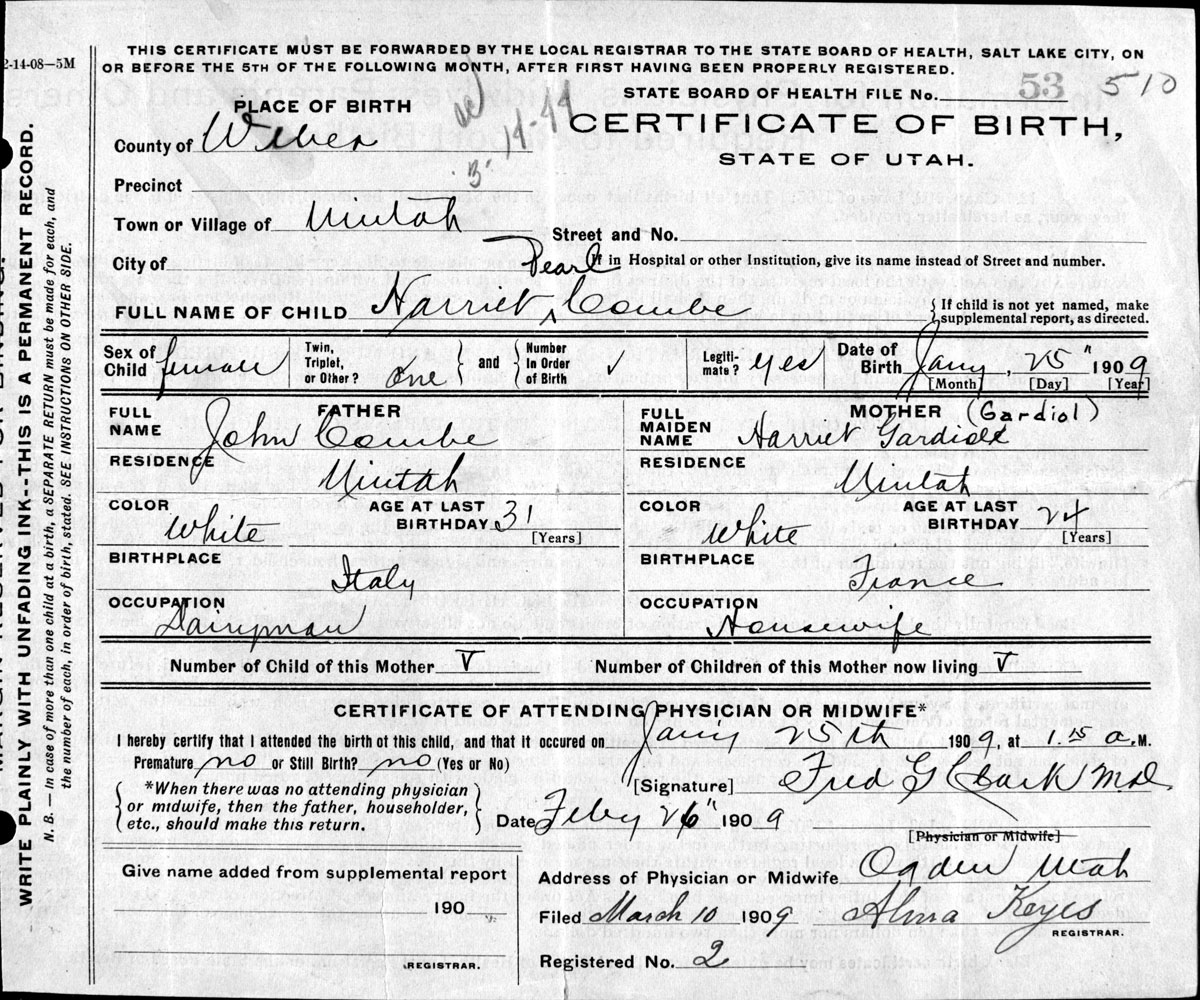 THIS CERTIFICATE MUST BE FORWARDED BY THE LOCAL REGISTRAR TO THE STATE BOARD OF HEALTH, SALT LAKE CITY, ON
2-14-08—5M
OR BEFORE THE 5TH OF THE FOLLOWING MONTH, AFTER FIRST HAVING BEEN PROPERLY REGISTERED.
STATE BOARD OF HEALTH FILE No. 53 510
PLACE OF BIRTH
CERTIFICATE OF BIRTH,
County of Weber
STATE OF UTAH.
Precinct
Town or Village of Uintah
Street and No.
City of
If in Hospital or other Institution, give its name instead of Street and number.
Pearl
FULL NAME OF CHILD Harriet ^ Combe
If child is not yet named, make
supplemental report, as directed.
Sex of Child female
Twin, Triplet, or Other? one
and Number In Order of Birth ✓
Legiti-mate? yes
Date of Birth Jany, 25" 1909
[Month] [Day] [Year]
FATHER
FULL NAME John Combe
RESIDENCE Uintah
COLOR White
AGE AT LAST BIRTHDAY 31
[Years]
BIRTHPLACE Italy
OCCUPATION Dairyman
MOTHER (Gardiol)
FULL MAIDEN NAME Harriet Gardiole
RESIDENCE Uintah
COLOR White
AGE AT LAST BIRTHDAY 24
[Years]
BIRTHPLACE France
OCCUPATION Housewife
Number of Child of this Mother V
Number of Children of this Mother now living V
CERTIFICATE OF ATTENDING PHYSICIAN OR MIDWIFE*
I hereby certify that I attended the birth of this child, and that it occured on Jany 25th 1909, at 1.15 a.M.
Premature no or Still Birth? no (Yes or No)
*When there was no attending physician
or midwife, then the father, householder,
etc., should make this return.
[Signature] Fred G Clark MD
Date Feby 26" 1909
[Physician or Midwife]
Give name added from supplemental report
190
REGISTRAR.
Address of Physician or Midwife Ogden Utah
Filed March 10 1909 Alma Keyes
REGISTRAR.
Registered No. 2
WRITE PLAINLY WITH UNFADING INK--THIS IS A PERMANENT RECORD.
N. B. — In case of more than one child at a birth, a SEPARATE RETURN must be made for each, and
the number of each, in order of birth, stated. SEE INSTRUCTIONS ON OTHER SIDE.